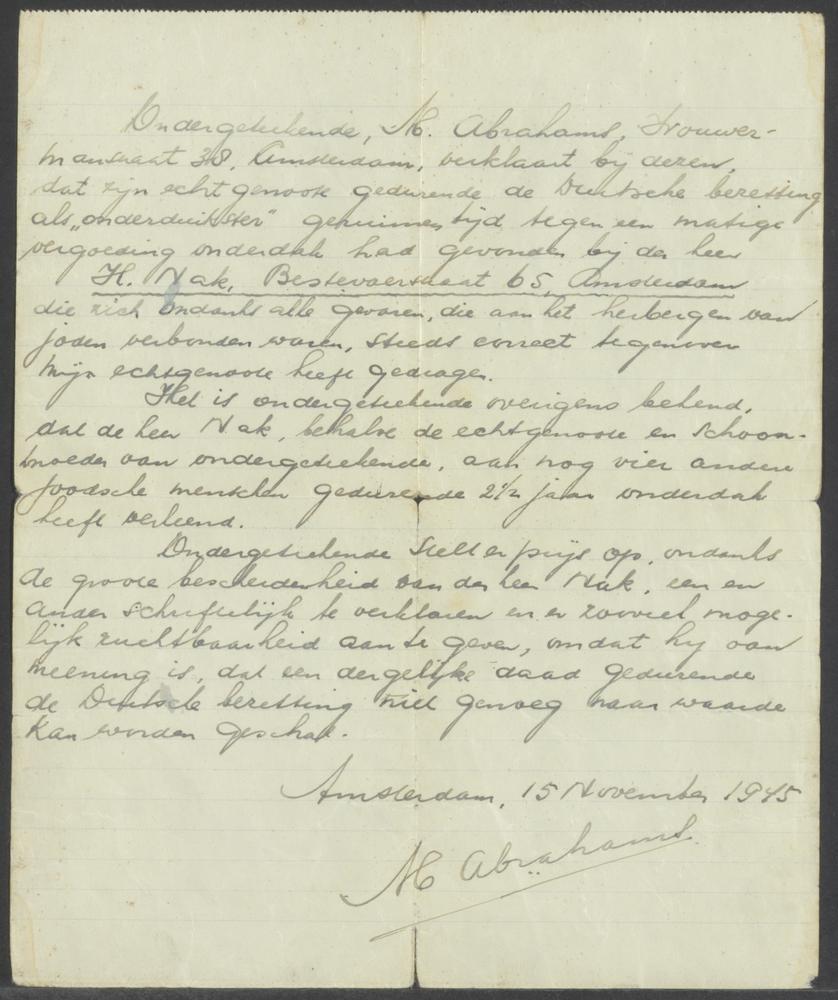 Ondergetekende, M. Abrahams, Trouwer-
manstraat 38, Amsterdam, verklaart bij dezen,
dat zijn echtgenoote gedurende de Duitsche bezetting
als „onderduikster" geruimen tijd tegen een matige
vergoeding onderdak had gevonden bij den heer
H. Nak, Bestevaerstraat 65, Amsterdam
die zich ondanks alle gevaren, die aan het herbergen van
joden verbonden waren, steeds correct tegenover
mijn echtgenoote heeft gedragen.
Het is ondergetekende overigens bekend,
dat de heer Nak, behalve de echtgenoote en schoon-
moeder van ondergetekende, aan nog vier andere
Joodsche menschen gedurende 2½ jaar onderdak
heeft verleend.
Ondergetekende stelt er prijs op, ondanks
de groote bescheidenheid van den heer Nak, een en
ander schriftelijk te verklaren en er zooveel moge-
lijk ruchtbaarheid aan te geven, omdat hij van
meening is, dat een dergelijke daad gedurende
de Duitsche bezetting niet genoeg naar waarde
kan worden geschat.
Amsterdam, 15 November 1945
M Abrahams